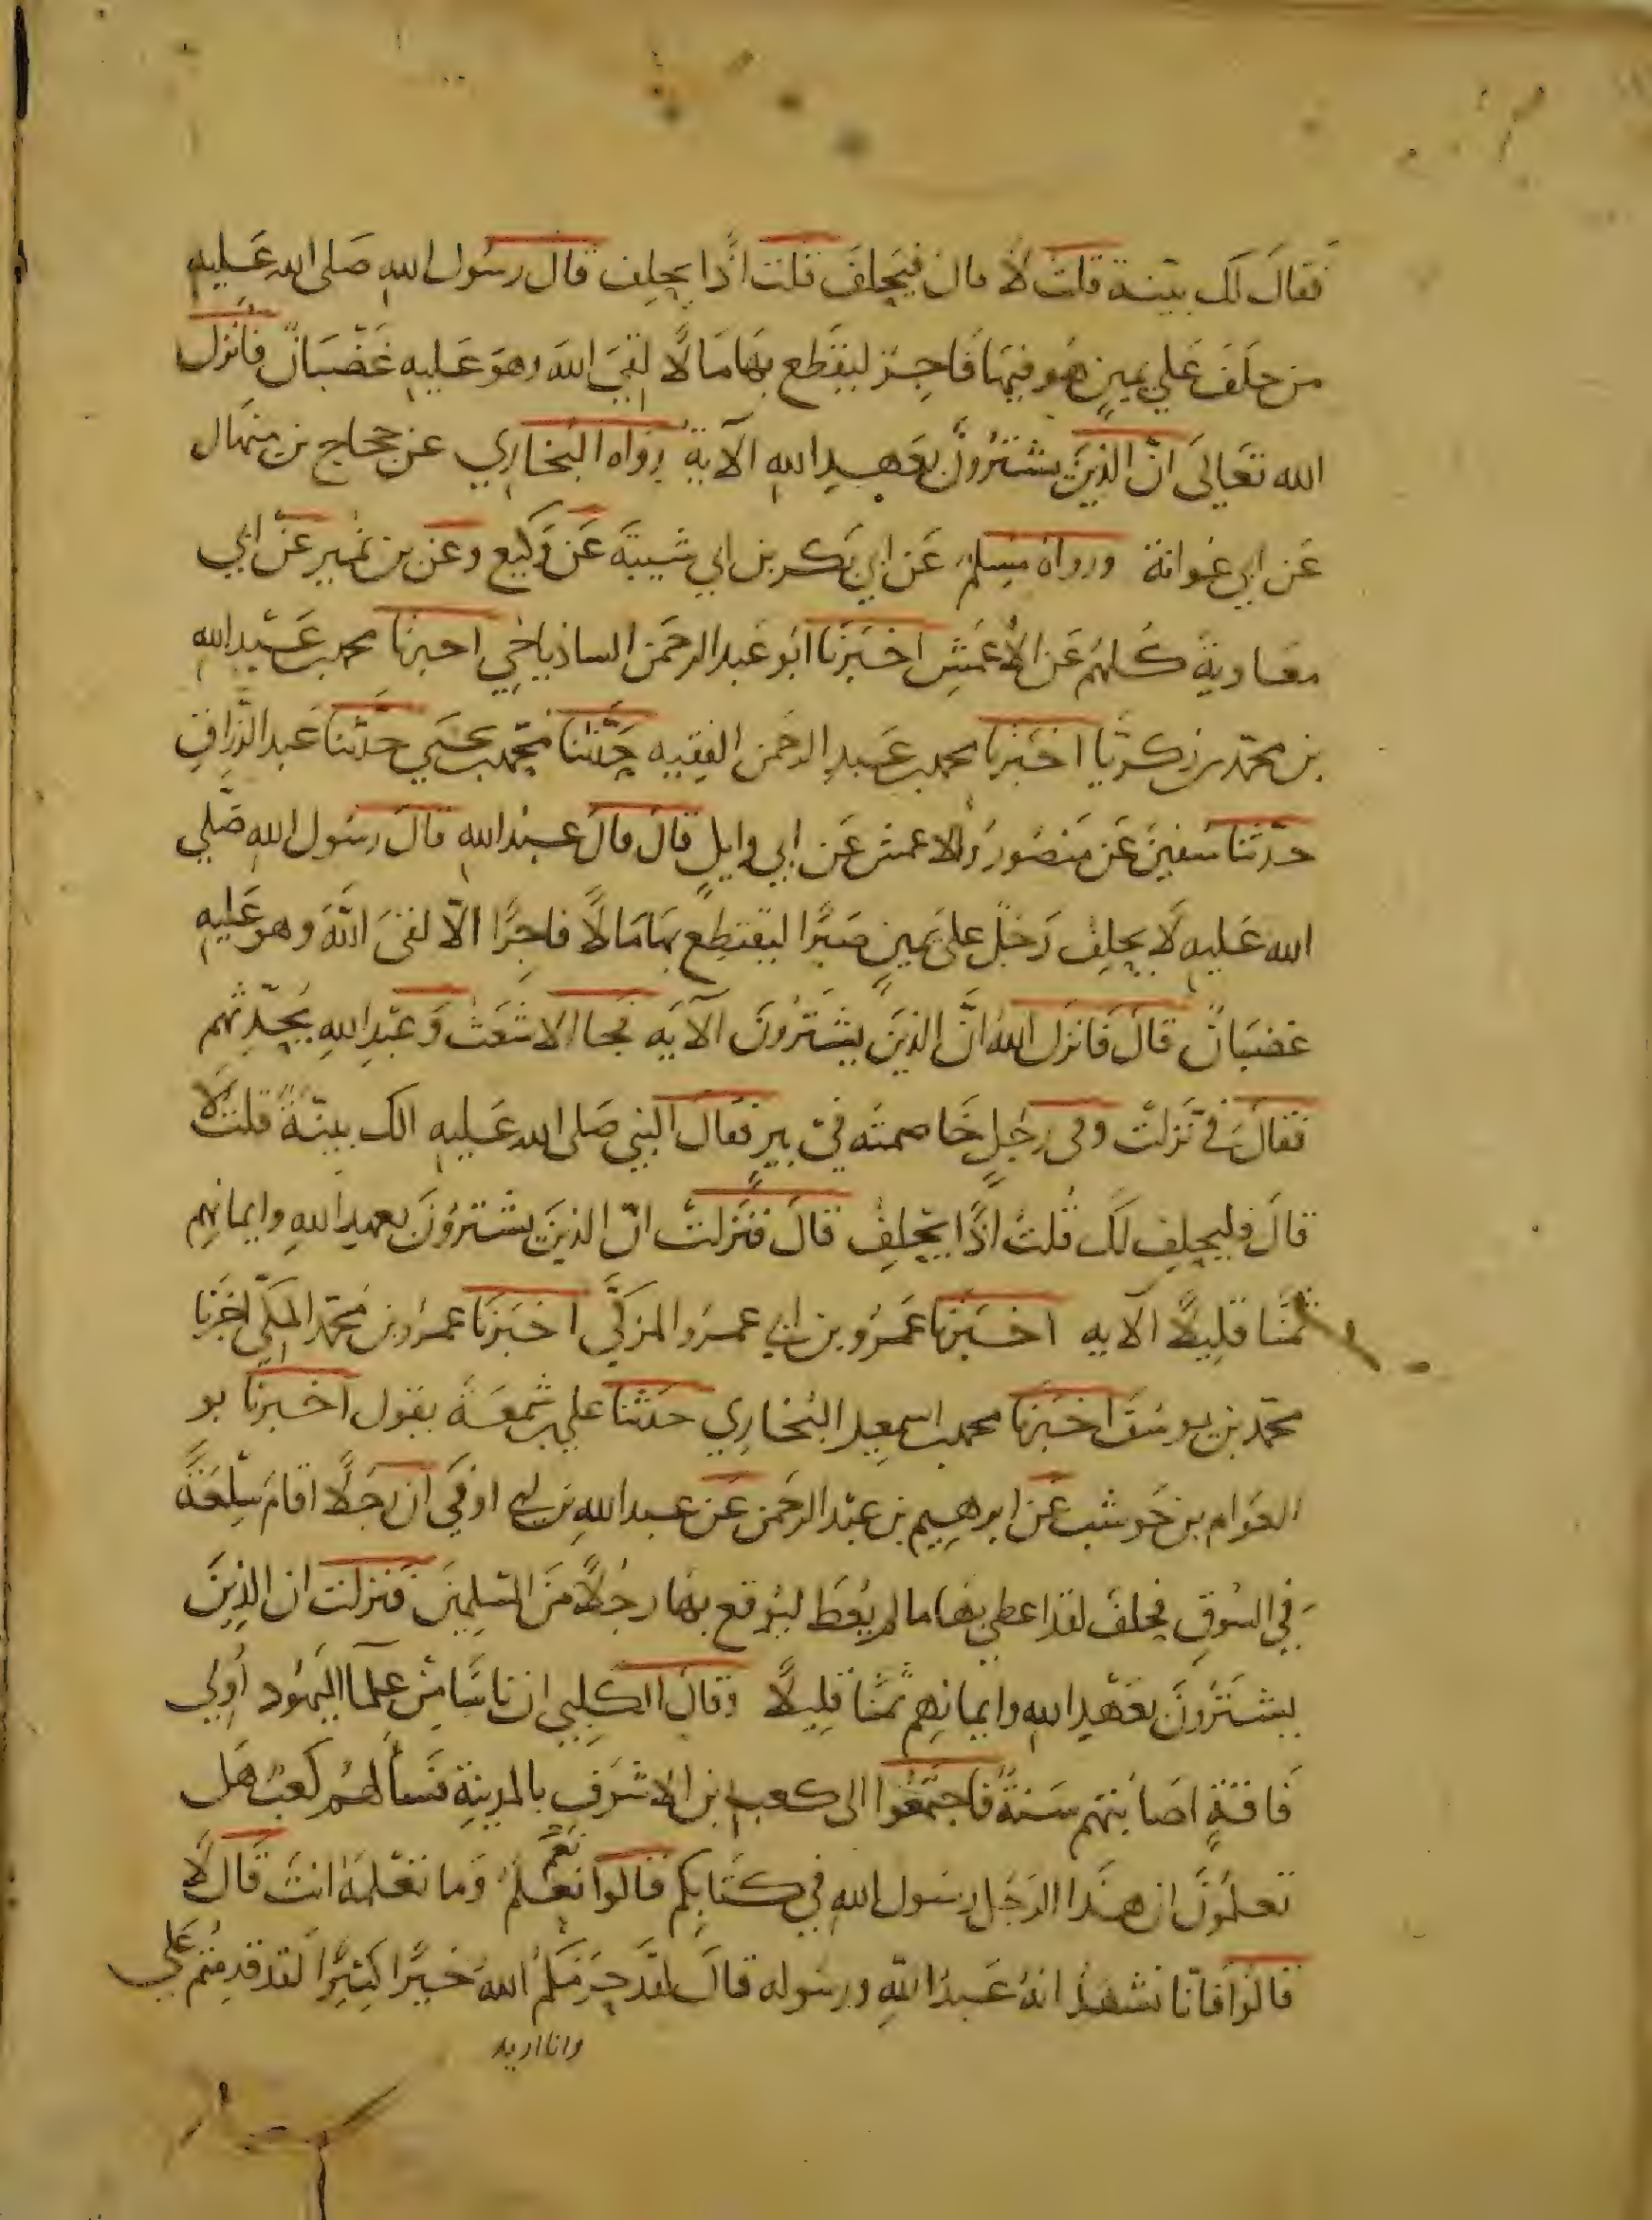 فقَالَ لَك بيّنة قلتُ لَا قال فيَحِلفَ قلت اذًا يحلِف قال رسُول اللهِ صَلى الله عَليهِ
من حَلفَ عَلي يمينٍ هُو فيهَا فَاجِرٌ ليَقتَطع بهَا مَالًا لِقيَ اللهَ وهوَ عَليهِ غَضْبَانٌ فأنزَل
الله تعَالىَ انّ الذِينَ يشترُونَ بعَهدِ اللهِ الآية رواه البُخارِي عن حجاج بن منهَال
عَن ابي عَوانة ورواه مسلم عَن ابي بَكر بن ابي شَيبَة عَن وَكيع وعَن بن نُمير عَن ابي
معَاويةَ كُلهُم عَن الأعمَشِ اخبَرَنا ابُو عَبد الرحمَن الساذياخِي اخبرنا محمد بن عَبْيد الله
بن محمّد بن زكريّا اخبَرنا محمد بن عَبد الرحمَن الفقِيه حَدّثنا محمّد بن يحيَي حَدّثنا عَبد الرّزاق
حدّثنا سُفينَ عَن مَنصُور والاعمش عَن ابي وايلٍ قالَ قالَ عبدُ اللهِ قالَ رسُول اللهِ صَلّي
الله عَليهِ لَا يحلِفُ رَجُلٌ عَلىَ يمينٍ صَبرًا ليَقتطِع بهَا مَالًا فاجِرًا الّا لقيَ اللّهَ وهو عَليهِ
غضبَانٌ قالَ فَانزَل اللهُ انَّ الذِينَ يشترُونَ الآيَه فجَا الاشعَث وَعَبْد اللهِ يُحدّثهُم
فقالَ فيّ نَزلت وفي رجُلٍ خَاصمتُه في بيرٍ فقَالَ النبي صَلى الله عَليهِ الك بينّةٌ قلتُ لَا
قالَ فليحلِف لَكَ قُلتُ اذًا يحَلِفُ قالَ فنَزلَتْ انّ الذينَ يشترُونَ بعهدِ اللهِ وايمانِهم
ثمَنًا قلِيلًا الآيه اخبَرنَا عَمرُو بن ابي عمرُو المزكّي اخبَرنَا عمرُو بن مُحمّد المكّي اخبَرنَا
محمّد بن يوسُفَ اخبَرنا محمد بن اسمعِيل البُخارِي حَدثنا علي بن شمعَة يقول اخبرنا بو
العَوام بن حَوشب عَن ابرهِيم بن عَبْد الرحمَن عَن عبد اللهِ بن ابي اوفيَ ان رجلًا اقامَ سِلعَةً
في السُوقِ فحلفَ لقد اعطِي بهَا ما لم يُعطَ ليُوقع بهَا رجُلًا منَ المُسلِمينَ فنزلت ان الذِينَ
يشترُونَ بعَهدِ اللهِ وايمانِهم ثمَنًا قلِيلًا وقالَ الكلبِي ان نَاسًا مِن عُلمَآ اليَهُود اُولي
فَاقةٍ اصَابتهُم سَنةٌ فَاجتمَعُوا الى كعب بن الاشرَفِ بالمدينةِ فسَألهُم كَعبٌ هَل
تعلمُونَ ان هذا الرجُل رسُول اللهِ في كتَابِكم قالُوا نَعَم نعْلَمُ وَما تعْلمُهُ انتَ قالَ لَا
قالوُا فَانّا نشهَدُ انهُ عَبدُ اللّهِ ورسُوله قالَ لقَد حَرَمكُم اللهُ خَيرًا كثِيرًا لقَد قدِمتُم عَلي
وانا اريد